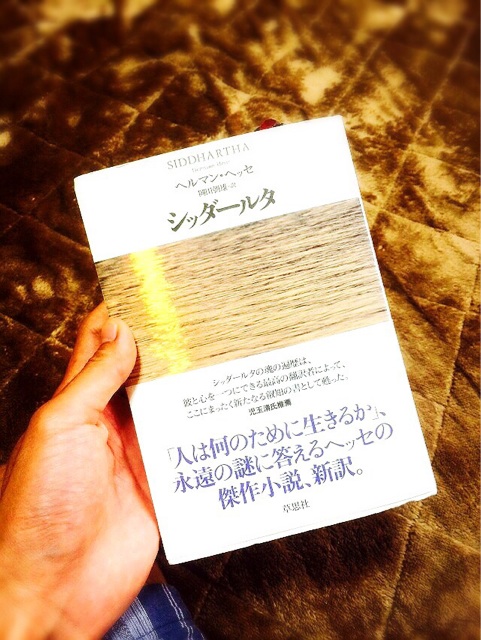 SIDDHARTHA
Hermann Hesse
ヘルマン・ヘッセ
岡田朝雄・訳
シッダールタ
シッダールタの魂の遍歴は、
彼と心を一つにできる最高の翻訳者によって、
ここにまったく新たなる叡知の書として甦った。
児玉清氏推薦
「人は何のために生きるか」、
永遠の謎に答えるヘッセの
傑作小説、新訳。
草思社